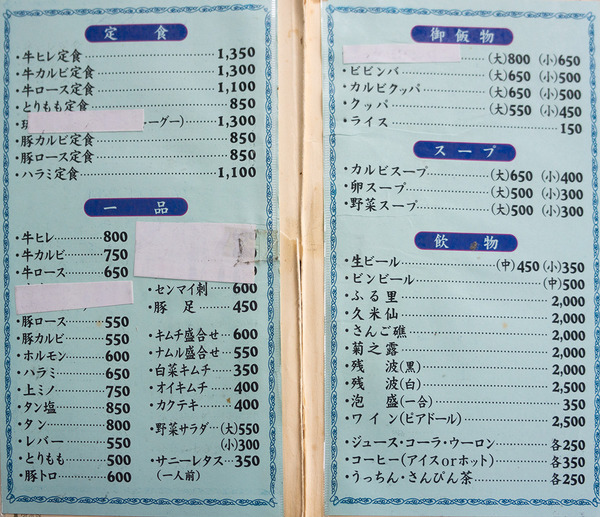 定食
・牛ヒレ定食……1,350
・牛カルビ定食……1,300
・牛ロース定食……1,100
・とりもも定食……850
ーグー)……1,300
・豚カルビ定食……850
・豚ロース定食……850
・ハラミ定食……1,100
一品
・牛ヒレ……800
・牛カルビ……750
・牛ロース……650
・豚ロース……550
・豚カルビ……550
・ホルモン……600
・ハラミ……650
・上ミノ……750
・タン塩……850
・タン……800
・レバー……550
・とりもも……500
・豚トロ……600
・センマイ刺…600
・豚足……450
・キムチ盛合せ…600
・ナムル盛合せ…550
・白菜キムチ……350
・オイキムチ……400
・カクテキ……400
・野菜サラダ…(大)550
(小)300
・サニーレタス…350
(一人前)
御飯物
(大)800 (小)650
・ビビンバ……(大)650 (小)500
・カルビクッパ……(大)650 (小)500
・クッパ……(大)550 (小)450
・ライス……150
スープ
・カルビスープ……(大)650 (小)400
・卵スープ……(大)500 (小)300
・野菜スープ……(大)500 (小)300
飲物
・生ビール……(中)450 (小)350
・ビンビール……(中)500
・ふる里……2,000
・久米仙……2,000
・さんご礁……2,000
・菊之露……2,000
・残波(黒)……2,000
・残波(白)……2,500
・泡盛(一合)……350
・ワイン(ピアドール)……2,500
・ジュース・コーラ・ウーロン……各250
・コーヒー(アイスorホット)……各350
・うっちん・さんぴん茶……各250